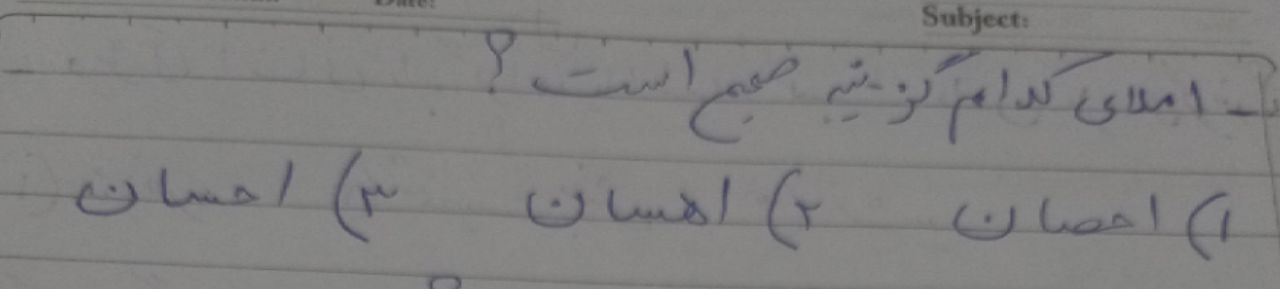 Subject:
- املای کدام گزینه صحیح است؟
۱) احصان ۲) اهسان ۳) احسان